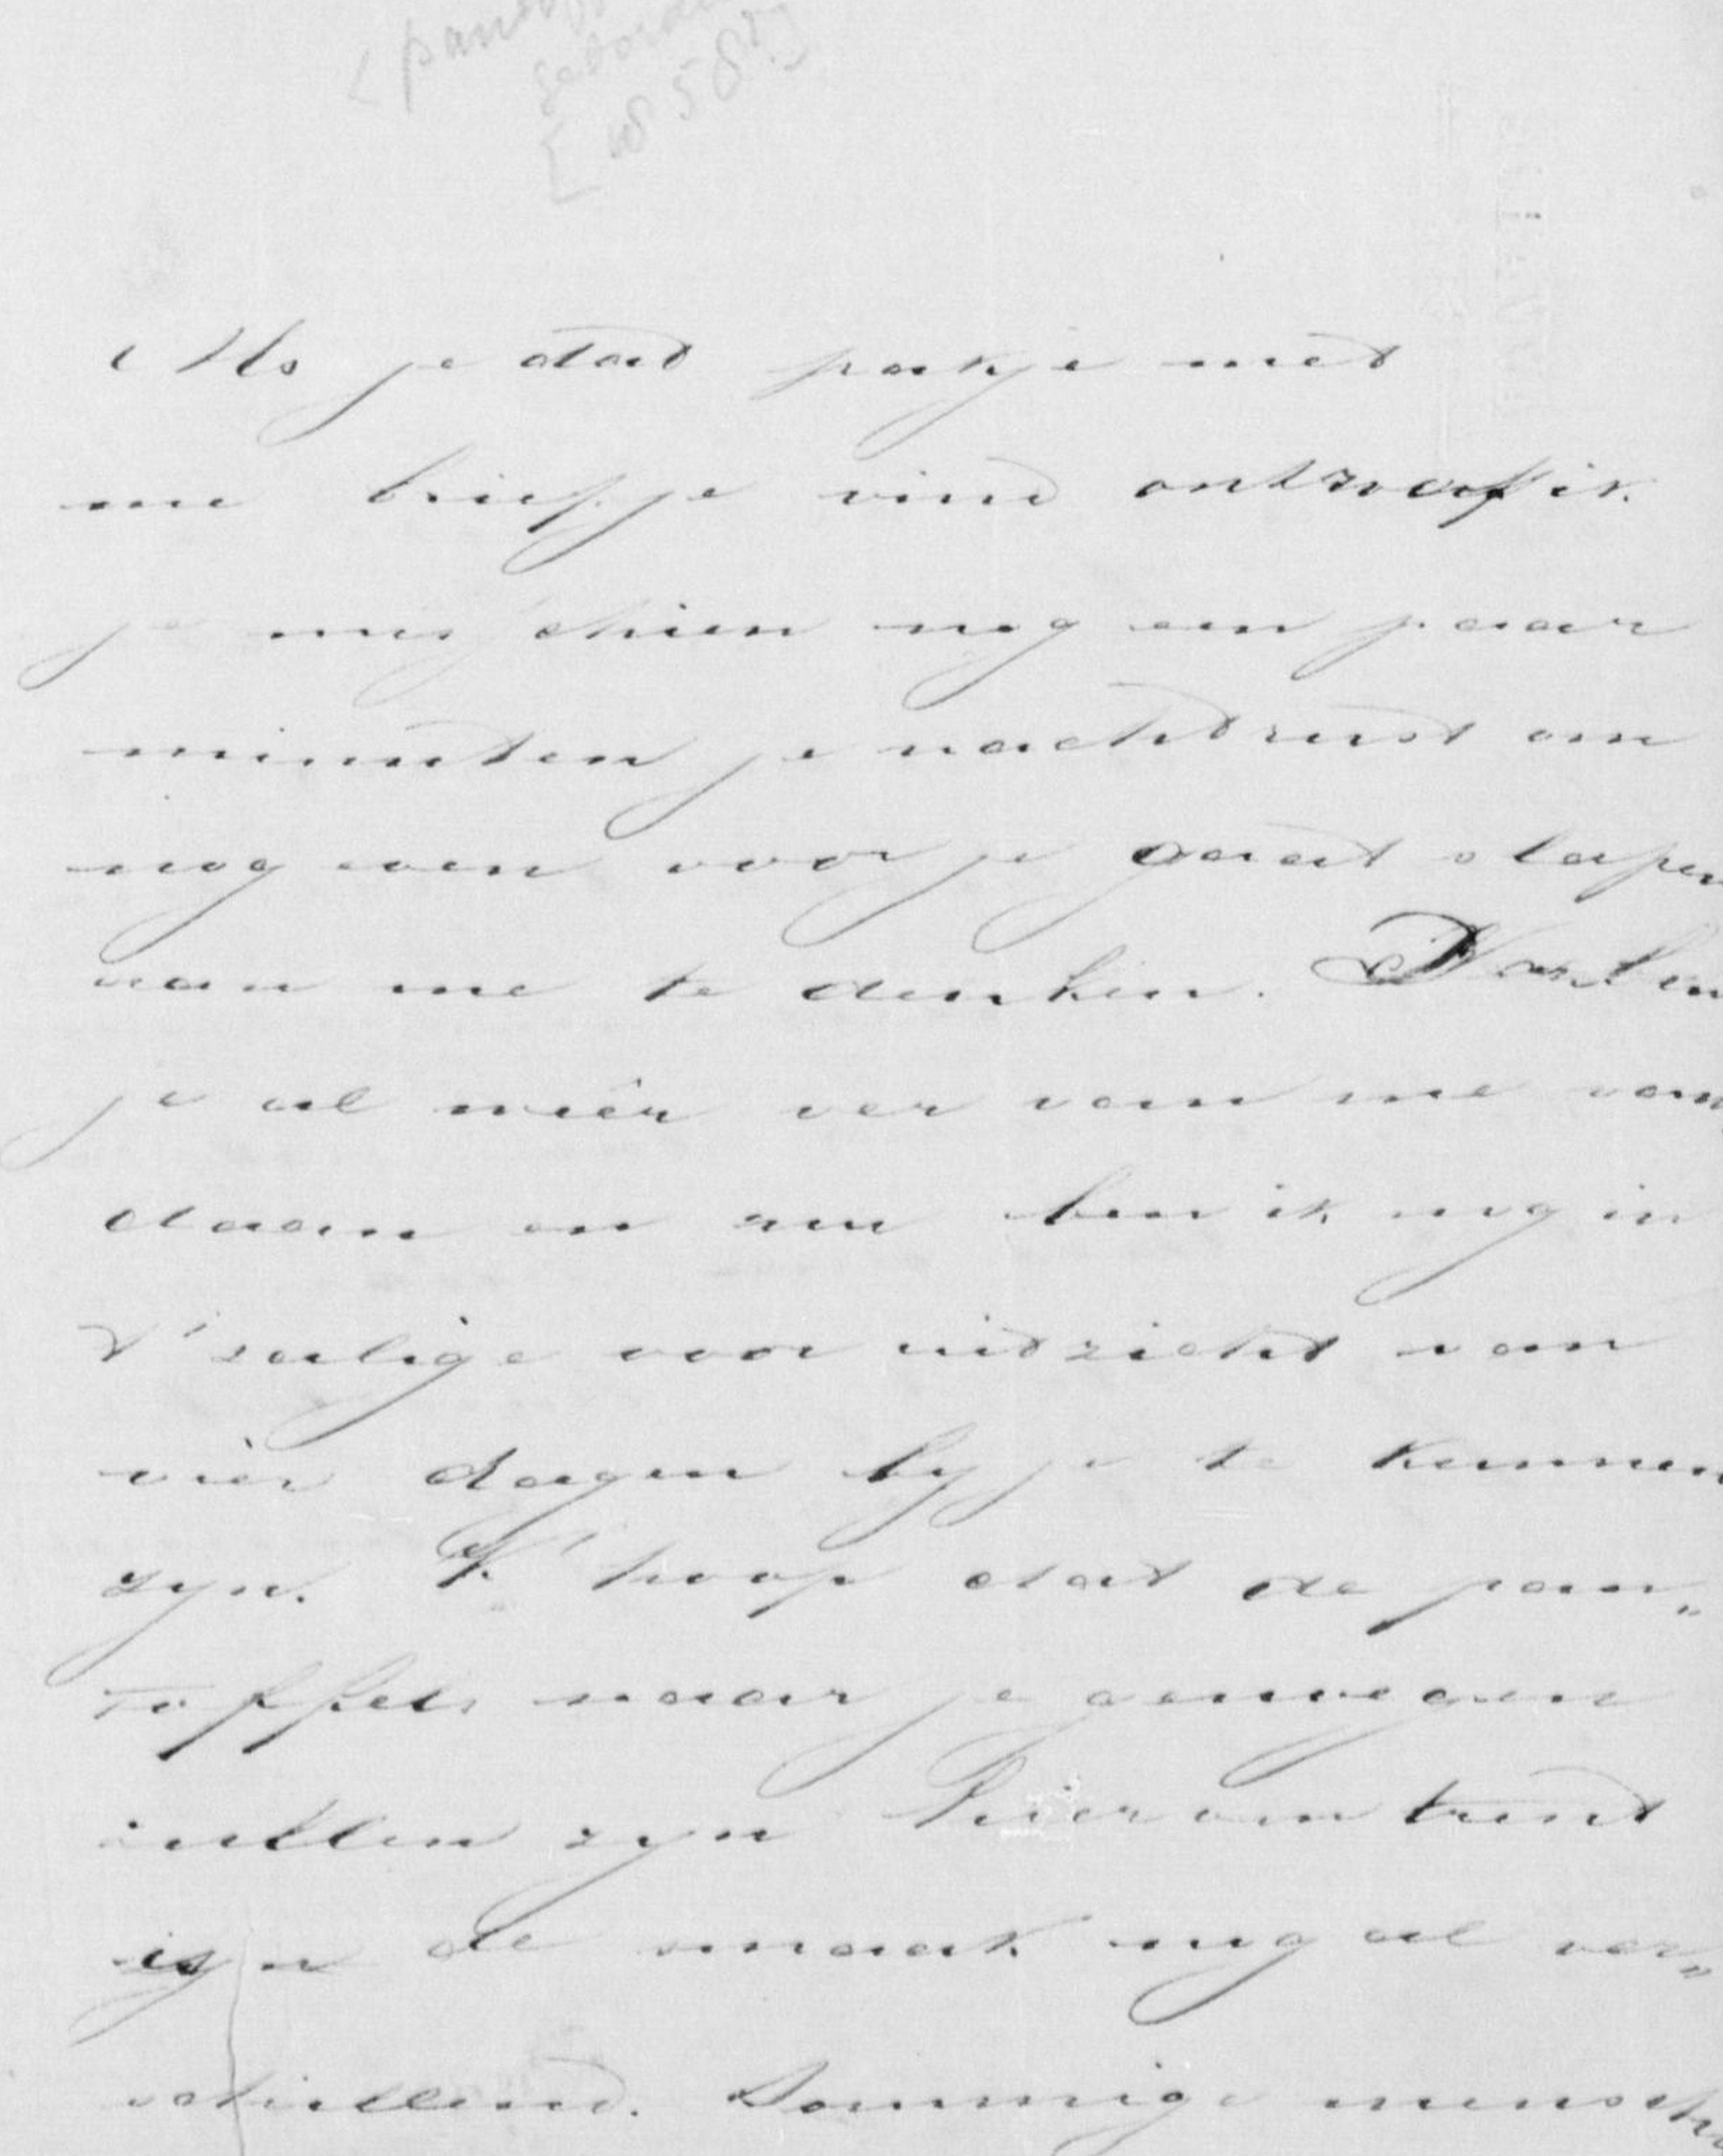 Als je dat pakje met
me briefje vind ontroof ik
je misschien nog een paar
minuten je nachtrust om
nog even voor je gaat slapen
aan me te denken.
je al weêr ver van me van
daan en nu ben ik nog in
't salige vooruitzicht van
vier dagen by je te kunnen
zyn. K' hoop dat de pan„
toffels naar je genoegen
zullen zyn Hieromtrent
is de smaak nog al ver„
schillend. Sommige mensch